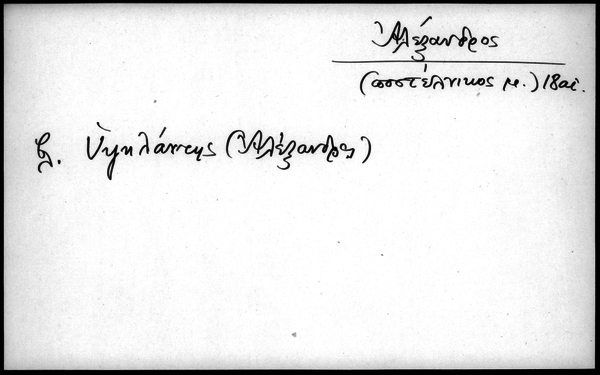 Ἀλέξανδρος
(ποστέλνικος μ.) 18 αἰ.
βλ. Ὑψηλάντης (Ἀλέξανδρος)